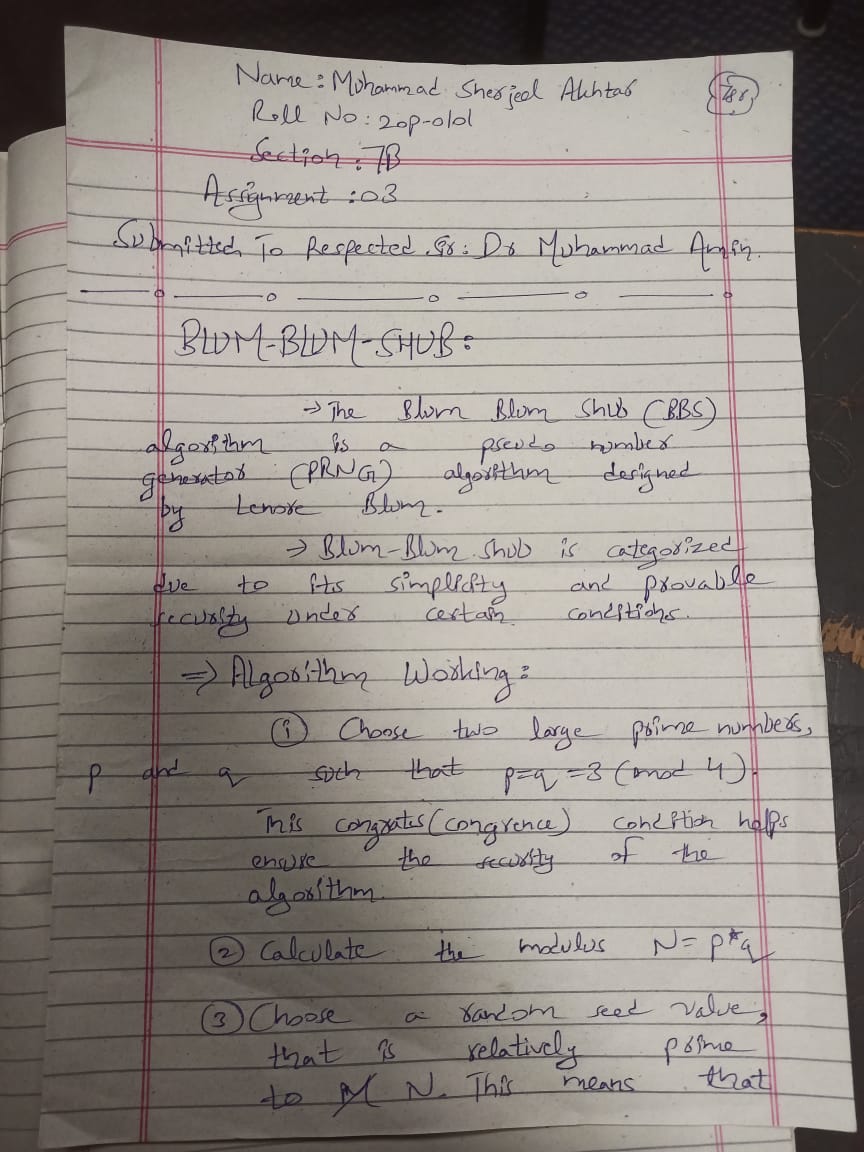 Name: Mohammad Sherjeel Akhtar
786
Roll No: 20p-0101
Section: 7B
Assignment: 03
Submitted To Respected Sir: Dr Muhammad Amin.
BLUM-BLUM-SHUB:
→ The Blum Blum Shub (BBS)
algorithm is a pseudo number
generator (PRNG) algorithm designed
by Lenore Blum.
→ Blum-Blum Shub is categorized
due to its simplicity and provable
security under certain conditions.
⇒ Algorithm Working:
① Choose two large prime numbers,
p and q such that p=q=3 (mod 4).
This congrates (congrence) condition helps
ensure the security of the
algorithm.
② Calculate the modulus N=p*q
③ Choose a random seed value,
that is relatively prime
to N. This means that